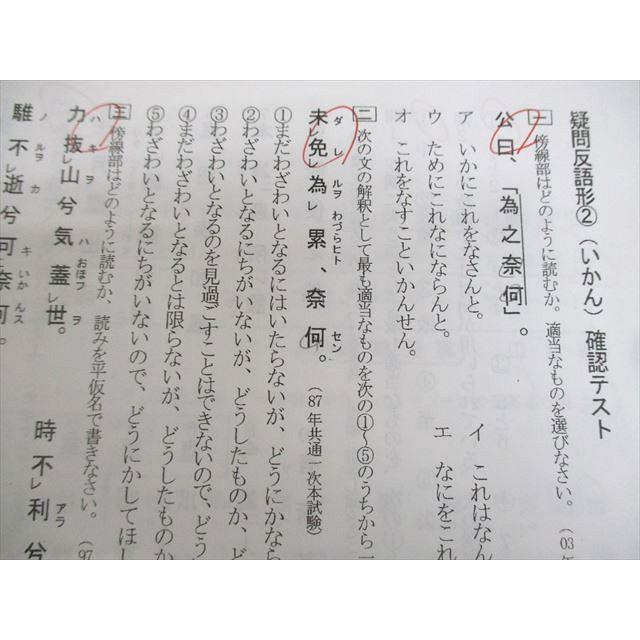 疑問反語形②（いかん）確認テスト
一 傍線部はどのように読むか。適当なものを選びなさい。（03年
公曰、「為之奈何」。
ア いかにこれをなさんと。
イ これはなん
ウ ためにこれなにならんと。
エ なにをこれ
オ これをなすこといかんせん。
二 次の文の解釈として最も適当なものを次の①〜⑤のうちから一
未ダレ免レ為ルヲレ累わづらヒト、奈何セン。（87年共通一次本試験）
①まだわざわいとなるにはいたらないが、どうにかなら
②わざわいとなるにちがいないが、どうしたものか、ど
③わざわいとなるのを見過ごすことはできないので、どう
④まだわざわいとなるとは限らないが、どうしたものか
⑤わざわいとなるにちがいないので、どうにかしてほし
三 傍線部はどのように読むか、読みを平仮名で書きなさい。（97
力ハ抜キレ山ヲ兮気ハ蓋おほフレ世ヲ。
時不レ利アラ兮
騅ノ不ルヲレ逝カ兮可キ奈何いかんス。